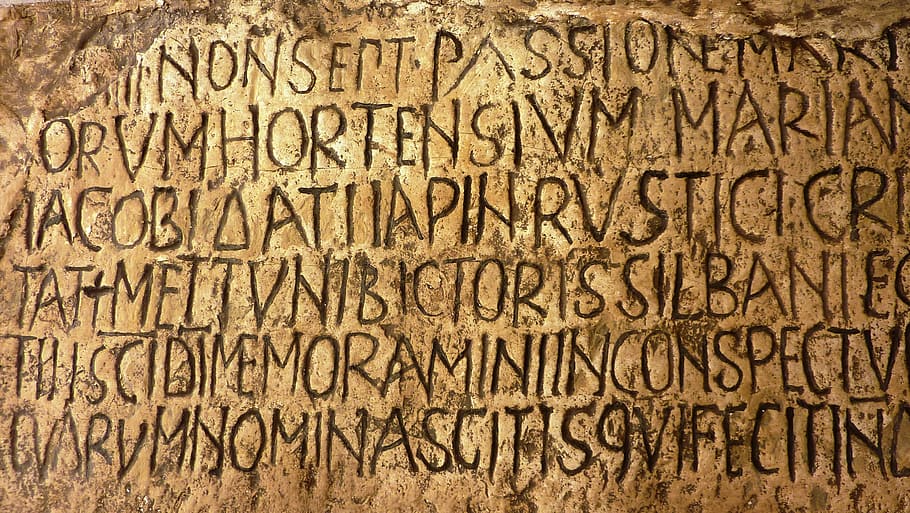 IIII NONSEPT·PASSIONEMART
ORVMHORTENSIVM MARIAN
IACOBIDATIIAPINRVSTICICRI
TAT+METTVNIBICTORISSILBANIEG
TIIISCIDIMEMORAMINIINCONSPECTV
QVARVMNOMINASCITISQVIFECITIN